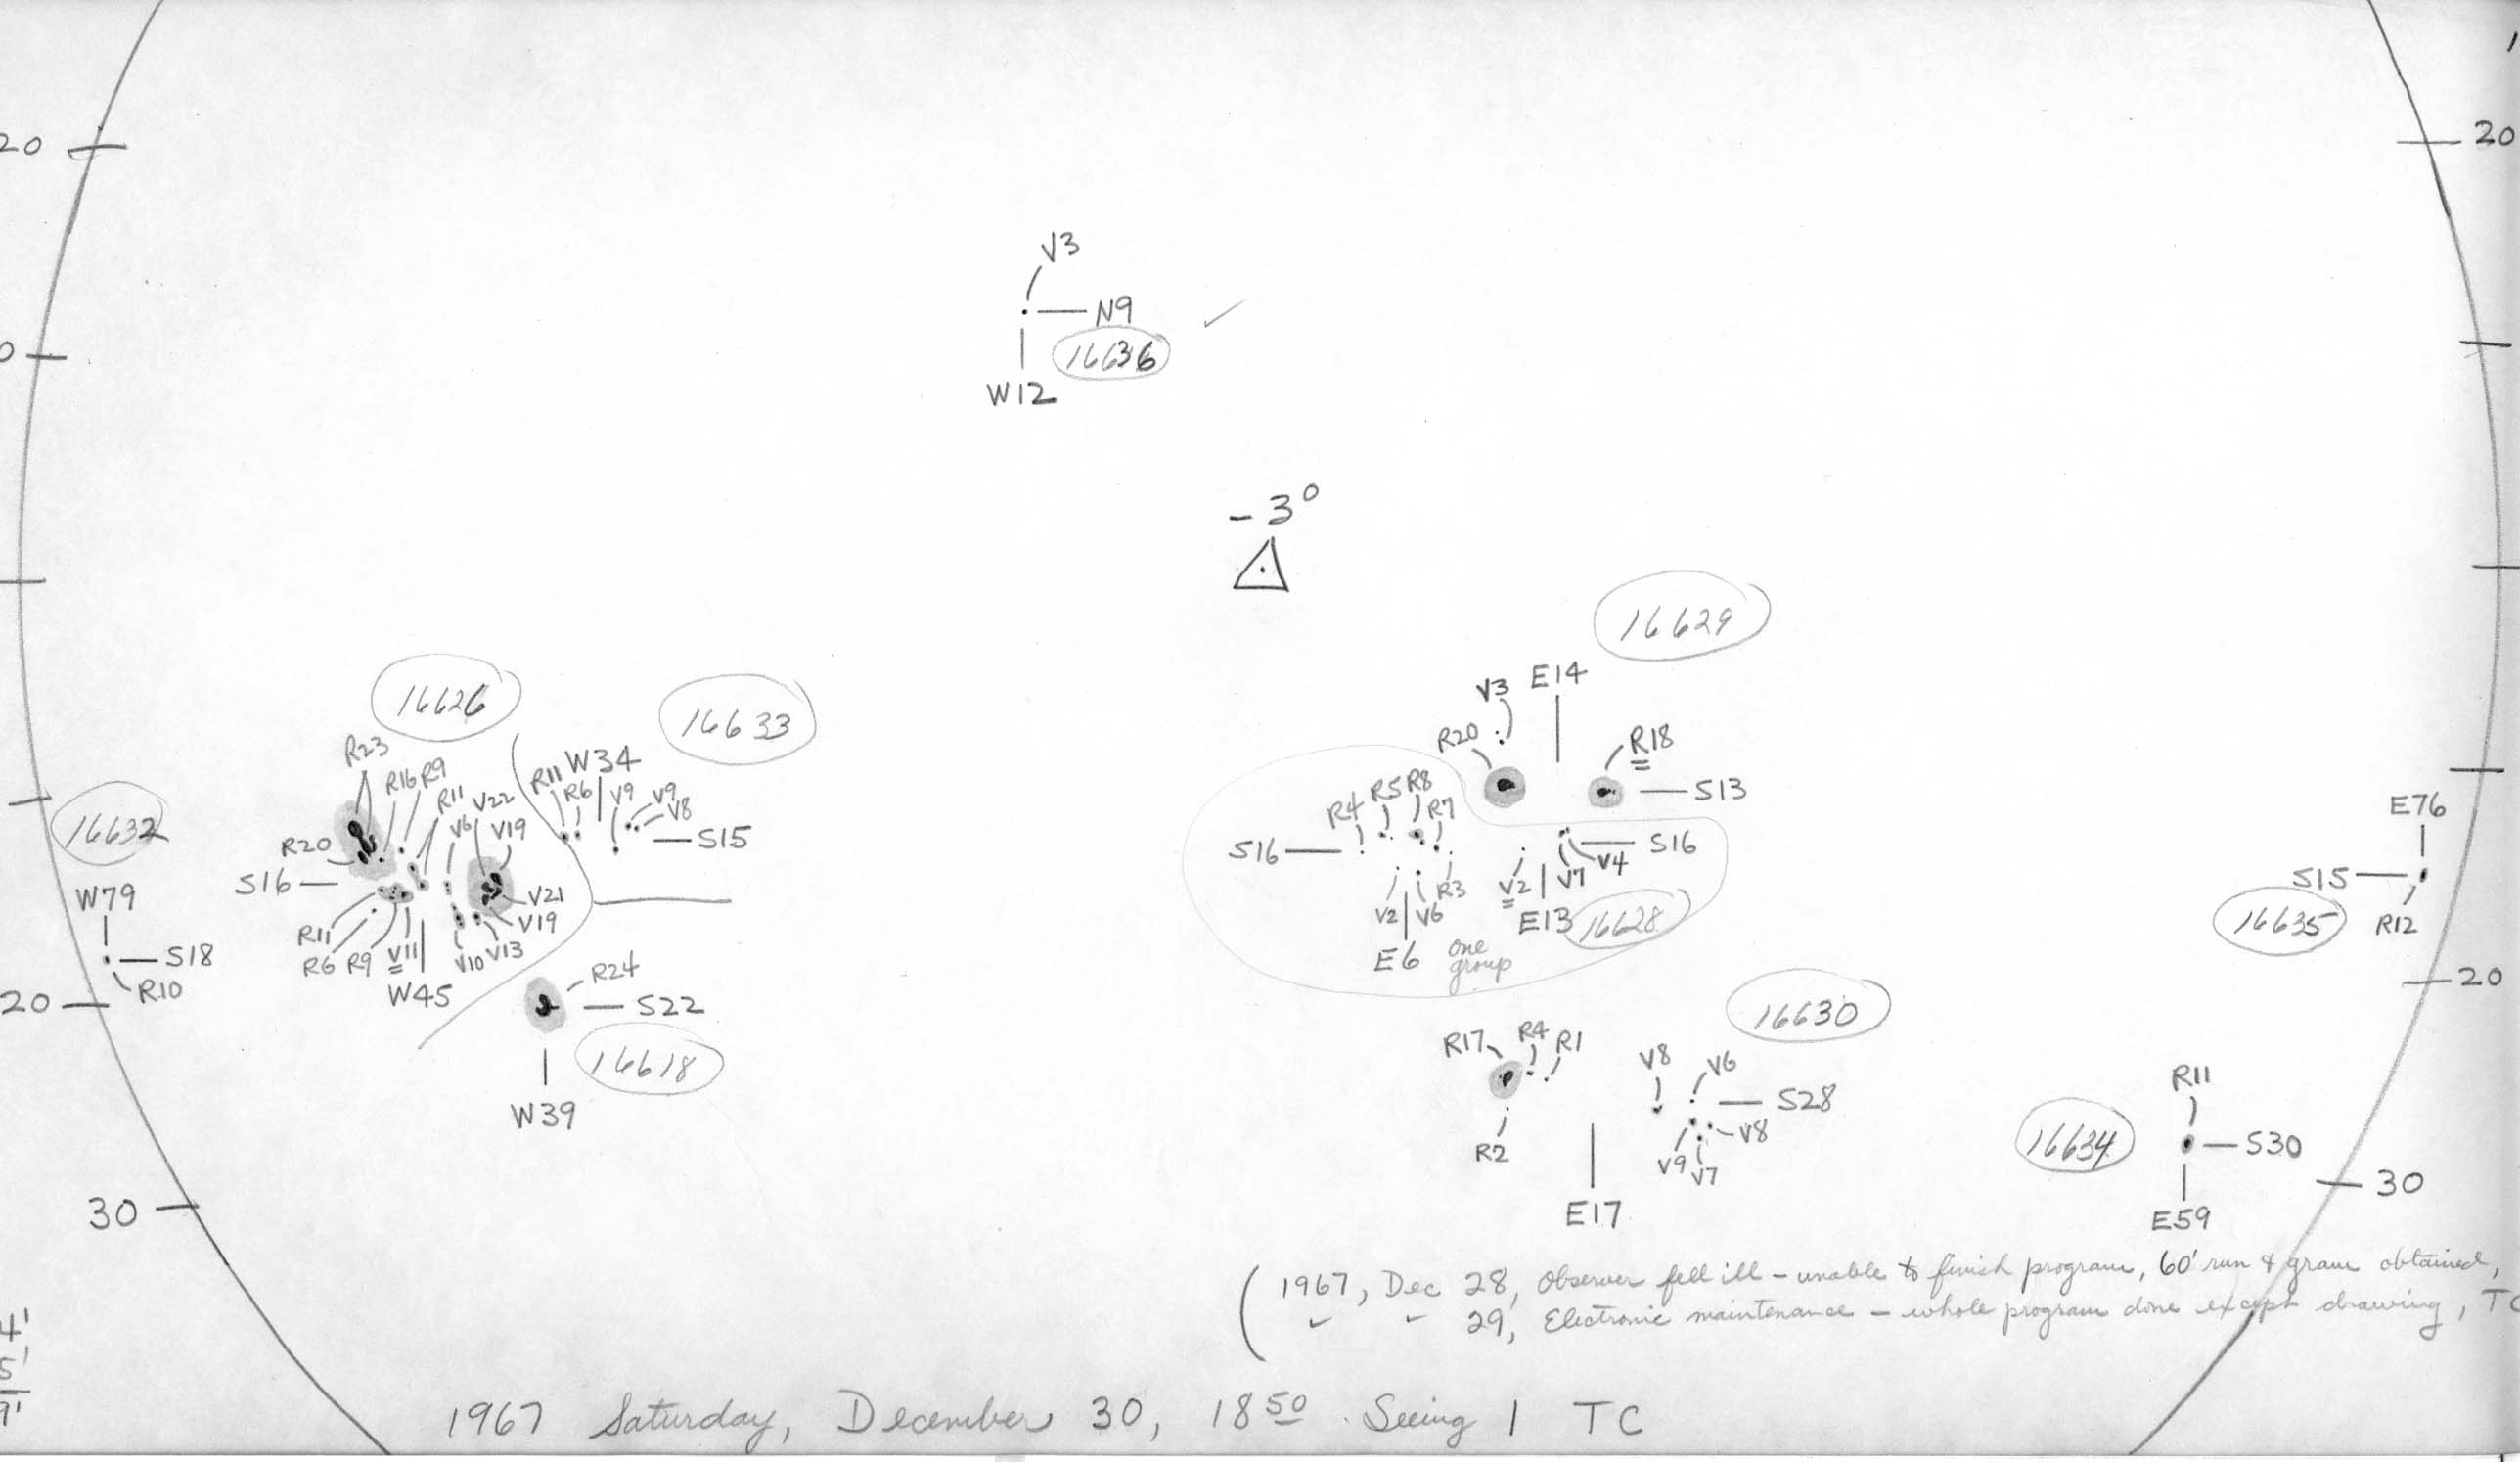 20
20
V3
N9
16636
W12
-3°
16629
E14
V3
R20
R18
S13
16626
16633
R23
R16 R9
R11
V22
V6
V19
R11
W34
R6
V9
V9
V8
S15
R20
S16
16632
W79
S18
R10
R11
R6
R9
V11
W45
V10
V13
V21
V19
R24
S22
16618
W39
R4
R5
R8
R7
S16
S16
V4
V7
V2
R3
V2
V6
E6
one
group
E13
16628
E76
S15
16635
R12
20
20
16630
R17
R4
R1
V8
V6
S28
V8
R2
V9
V7
E17
R11
16634
S30
E59
30
30
1967, Dec 28, Observer fell ill - unable to finish program, 60' run & gram obtained,
" " 29, Electronic maintenance - whole program done except drawing, TC
4'
5'
9'
1967 Saturday, December 30, 18 50 Seeing 1 TC